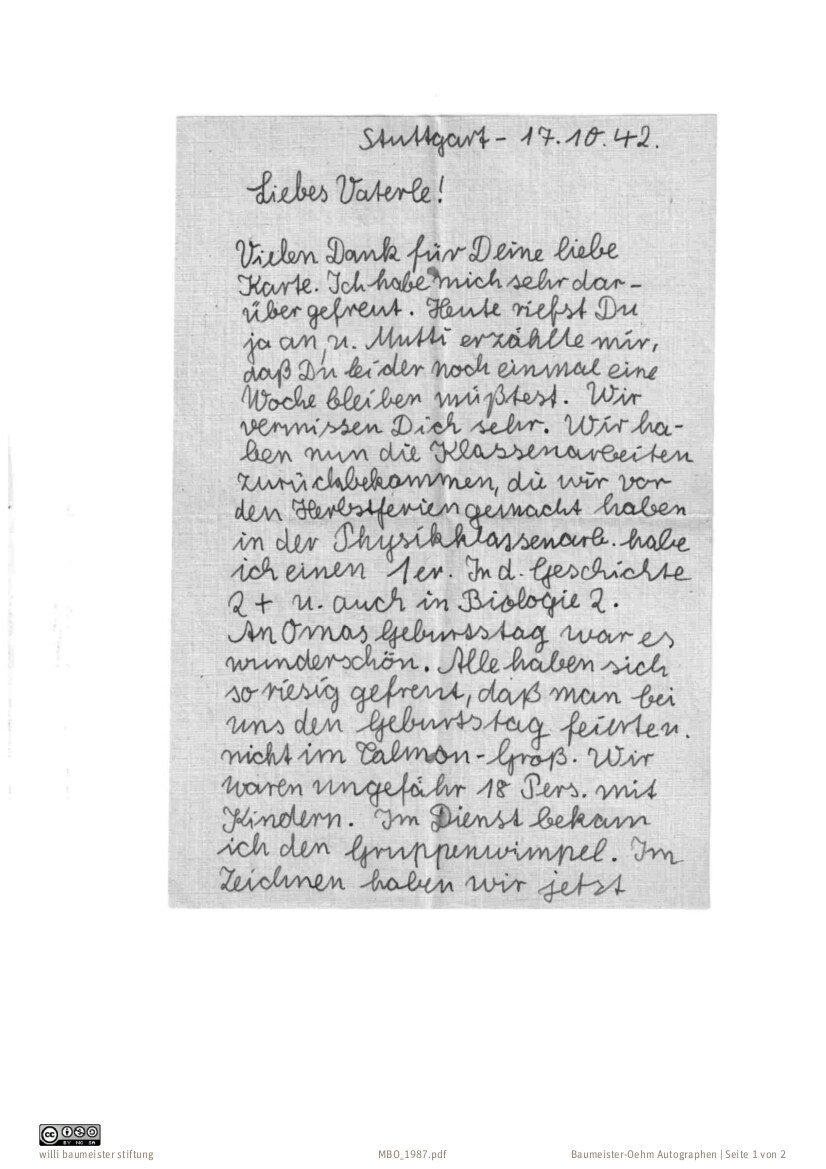 Stuttgart – 17.10.42.
Liebes Vaterle!
Vielen Dank für Deine liebe
Karte. Ich habe mich sehr dar-
über gefreut. Heute riefst Du
ja an, u. Mutti erzählte mir,
daß Du leider noch einmal eine
Woche bleiben müßtest. Wir
vermissen Dich sehr. Wir ha-
ben nun die Klassenarbeiten
zurückbekommen, die wir vor
den Herbstferien gemacht haben
in der Physikklassenarb. habe
ich einen 1er. In d. Geschichte
2+ u. auch in Biologie 2.
An Omas Geburtstag war es
wunderschön. Alle haben sich
so riesig gefreut, daß man bei
uns den Geburtstag feierten.
nicht im Calmon-Groß. Wir
waren ungefähr 18 Pers. mit
Kindern. Im Dienst bekam
ich den Gruppenwimpel. Im
Zeichnen haben wir jetzt
CC BY NC SA
willi baumeister stiftung
MBO_1987.pdf
Baumeister-Oehm Autographen | Seite 1 von 2